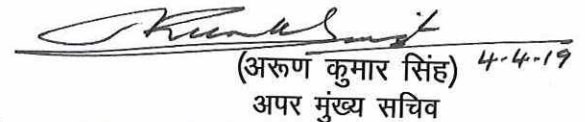 (अरूण कुमार सिंह) 4-4-19
अपर मुंख्य सचिव